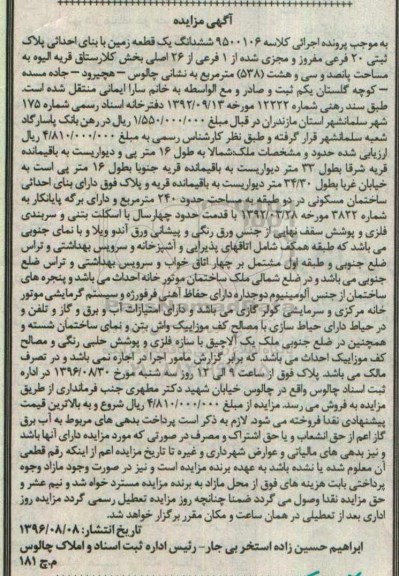 آگهی مزایده
به موجب پرونده اجرائی کلاسه ۹۵۰۰۱۰۶ ششدانگ یک قطعه زمین با بنای احداثی پلاک
ثبتی ۲۰ فرعی مفروز و مجزی شده از ۱ فرعی از ۲۶ اصلی بخش کلارستاق قریه الیوه به
مساحت پانصد و سی و هشت (۵۳۸) مترمربع به نشانی چالوس – هچیرود – جاده مسده
– کوچه گلستان یکم ثبت و صادر و مع الواسطه به خانم سارا ایمانی منتقل شده است.
طبق سند رهنی شماره ۱۲۲۲۲ مورخه ۱۳۹۲/۰۹/۱۳ دفترخانه اسناد رسمی شماره ۱۷۵
شهر سلمانشهر استان مازندران در قبال مبلغ ۱/۵۵۰/۰۰۰/۰۰۰ ریال در رهن بانک پاسارگاد
شعبه سلمانشهر قرار گرفته و طبق نظر کارشناس رسمی به مبلغ ۴/۸۱۰/۰۰۰/۰۰۰ ریال
ارزیابی شده حدود و مشخصات ملک:شمالا به طول ۱۶ متر پی و دیواریست به باقیمانده
قریه شرقا بطول ۳۳ متر دیواریست به باقیمانده قریه جنوبا بطول ۱۶ متر پی است به
خیابان غربا بطول ۳۴/۳۰ متر دیواریست به باقیمانده قریه و پلاک فوق دارای بنای احداثی
ساختمان مسکونی در دو طبقه به مساحت حدود ۲۴۰ مترمربع و دارای برگه پایانکار به
شماره ۳۸۲۲ مورخه ۱۳۹۲/۰۳/۲۸ با قدمت حدود چهارسال با اسکلت بتنی و سربندی
فلزی و پوشش سقف نهایی از جنس ورق رنگی و پیشانی ورق آندو ویلا و با نمای جنوبی
می باشد که طبقه همکف شامل اتاقهای پذیرایی و آشپزخانه و سرویس بهداشتی و تراس
ضلع جنوبی و طبقه اول مشتمل بر چهار اتاق خواب و سرویس بهداشتی و تراس ضلع
جنوبی می باشد و در ضلع شمالی ملک ساختمان موتور خانه احداث می باشد و پنجره های
ساختمان از جنس آلومینیوم دوجداره دارای حفاظ آهنی فرفورژه و سیستم گرمایشی موتور
خانه مرکزی و سرمایشی کولر گازی می باشد و دارای امتیازات آب و برق و گاز و تلفن و
در حیاط دارای حیاط سازی با مصالح کف موزاییک واش بتن و نمای ساختمان شسته و
همچنین در ضلع جنوبی ملک یک آلاچیق با سازه فلزی و پوشش حلبی رنگی و مصالح
کف موزاییک احداث می باشد که برابر گزارش مامور اجرا در اجاره نمی باشد و در تصرف
مالک می باشد. پلاک فوق از ساعت ۹ الی ۱۲ روز سه شنبه مورخ ۱۳۹۶/۰۸/۳۰ در اداره
ثبت اسناد چالوس واقع در چالوس خیابان شهید دکتر مطهری جنب فرمانداری از طریق
مزایده به فروش می رسد. مزایده از مبلغ ۴/۸۱۰/۰۰۰/۰۰۰ ریال شروع و به بالاترین قیمت
پیشنهادی نقدا فروخته می شود. لازم به ذکر است پرداخت بدهی های مربوط به آب برق
گاز اعم از حق انشعاب و یا حق اشتراک و مصرف در صورتی که مورد مزایده دارای آنها باشد
و نیز بدهی های مالیاتی و عوارض شهرداری و غیره تا تاریخ مزایده اعم از اینکه رقم قطعی
آن معلوم شده یا نشده باشد به عهده برنده مزایده است و نیز در صورت وجود مازاد وجوه
پرداختی بابت هزینه های فوق از محل مازاد به برنده مزایده مسترد خواهد شد و نیم عشر و
حق مزایده نقدا وصول می گردد ضمنا چنانچه روز مزایده تعطیل رسمی گردد مزایده روز
اداری بعد از تعطیلی در همان ساعت و مکان مقرر برگزار خواهد شد.
تاریخ انتشار: ۱۳۹۶/۰۸/۰۸
ابراهیم حسین زاده استخر بی جار– رئیس اداره ثبت اسناد و املاک چالوس
م.چ ۱۸۱